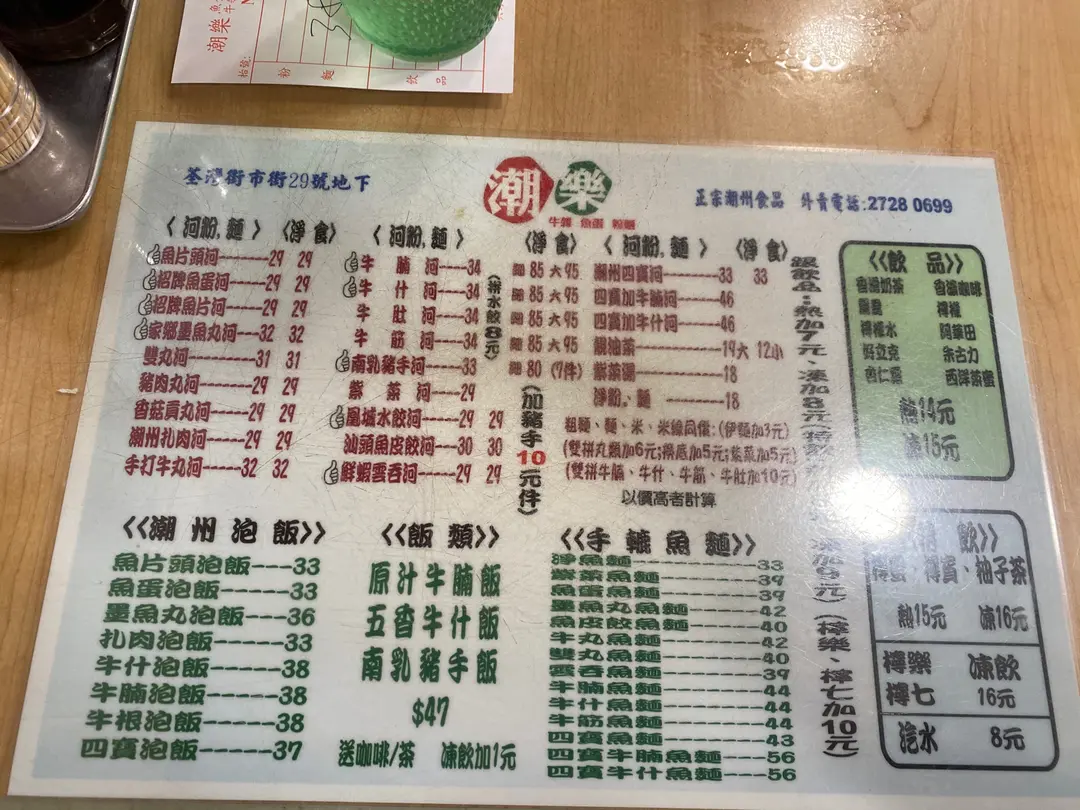 潮樂
魚
牛
枱號:
粉
麵
飲
品
荃灣街市街29號地下
潮樂
牛雜 魚蛋 粉麵
正宗潮州食品 外賣電話:2728 0699
〈河粉,麵〉 〈淨食〉
魚片頭河------29 29
招牌魚蛋河----29 29
招牌魚片河----29 29
家鄉墨魚丸河---32 32
雙丸河--------31 31
豬肉丸河------29 29
香菇貢丸河----29 29
潮州扎肉河----29 29
手打牛丸河----32 32
〈河粉,麵〉 〈淨食〉
牛腩河----34 細85 大95
牛什河----34 細85 大95
牛肚河----34 細85 大95
牛筋河----34 細85 大95
南乳豬手河----33 細80 (7件)
紫菜河----29
鳳城水餃河----30 30
汕頭魚皮餃河---30 30
鮮蝦雲吞河----29 29
(拼水餃8元)
(加豬手10元件)
〈河粉,麵〉 〈淨食〉
潮州四寶河------33 33
四寶加牛腩河-----46
四寶加牛什河-----46
靚油菜--------19大 12小
紫菜湯--------18
淨粉、麵------18
粗麵、麵、米、米線同價:(伊麵加3元)
(雙拼丸類加6元;撈底加5元;紫菜加5元)
(雙拼牛腩、牛什、牛筋、牛肚加10元)
以價高者計算
餐飲品:熱加7元、凍加8元(特飲
凍加9元)(檸樂、檸七加10元)
《飲品》
香滑奶茶 香濃咖啡
檸檬
檸檬水 阿華田
好立克 朱古力
杏仁霜 西洋菜蜜
熱14元
凍15元
《特飲》
檸蜜、檸賓、柚子茶
熱15元 凍16元
檸樂 凍飲
檸七 16元
汽水 8元
《潮州泡飯》
魚片頭泡飯---33
魚蛋泡飯-----33
墨魚丸泡飯---36
扎肉泡飯-----33
牛什泡飯-----38
牛腩泡飯-----38
牛根泡飯-----38
四寶泡飯-----37
《飯類》
原汁牛腩飯
五香牛什飯
南乳豬手飯
$47
送咖啡/茶 凍飲加1元
《手轆魚麵》
淨魚麵--------33
紫菜魚麵------39
魚蛋魚麵------39
墨魚丸魚麵----42
魚皮餃魚麵----40
牛丸魚麵------42
雙丸魚麵------40
雲吞魚麵------39
牛腩魚麵------44
牛什魚麵------44
牛筋魚麵------44
四寶魚麵------43
四寶牛腩魚麵----56
四寶牛什魚麵----56